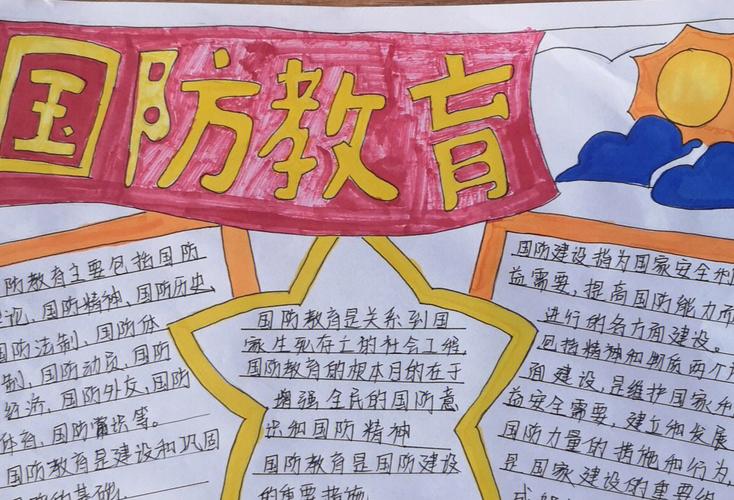 国防教育
防教育主要包括国防
论、国防精神、国防历史、
国防法制、国防体
制、国防动员、国防
经济、国防外交、国防
体育、国防常识等。
国防教育是建设和巩固
国防的基础,
国防教育是关系到国
家生死存亡的社会工程,
国防教育的根本目的在于
增强全民的国防意
识和国防精神
国防教育是国防建设
的重要措施
国防建设指为国家安全和
益需要,提高国防能力而
进行的各方面建设。
包括精神和物质两个
面建设,是维护国家利
益安全需要,建立和发展
国防力量的措施和行为,
是国家建设的重要